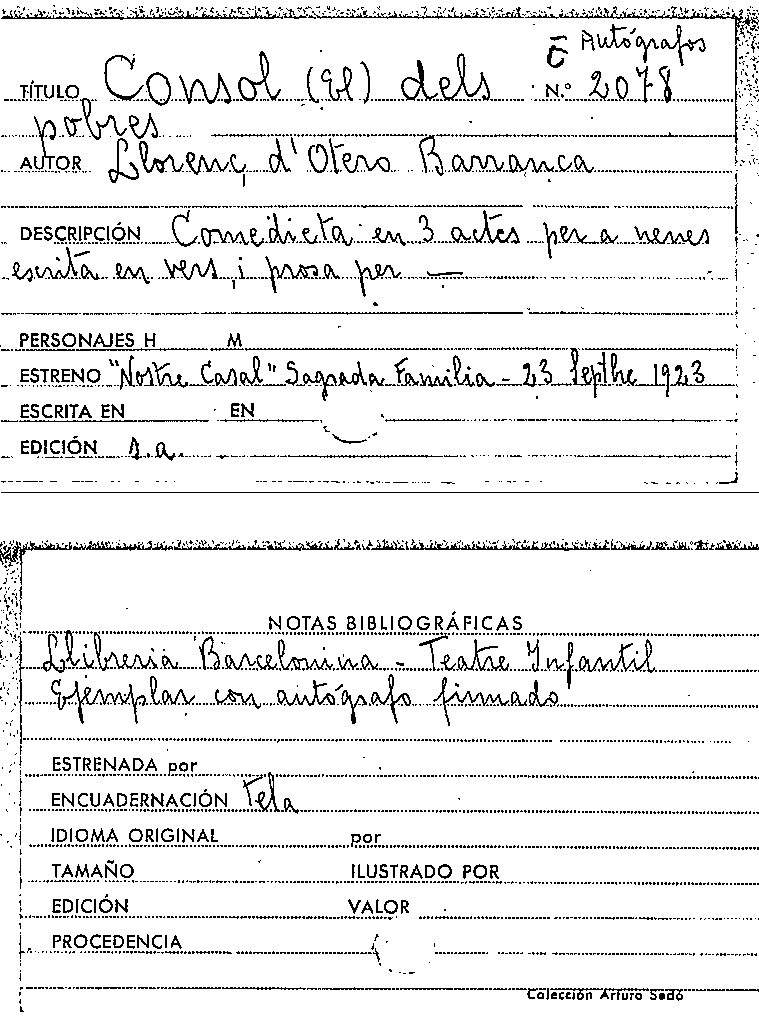 C̄ Autógrafos
TÍTULO Consol (El) dels N.º 2078
pobres
AUTOR Llorenç d'Otero Barranca
DESCRIPCIÓN Comedieta en 3 actes per a nenes
escrita en vers, i prosa per —
PERSONAJES H M
ESTRENO "Nostre Casal" Sagrada Familia - 23 Septbre 1923
ESCRITA EN EN
EDICIÓN s.a.
NOTAS BIBLIOGRÁFICAS
Llibreria Barcelonina - Teatre Infantil
Ejemplar con autógrafo firmado
ESTRENADA por
ENCUADERNACIÓN Tela
IDIOMA ORIGINAL por
TAMAÑO ILUSTRADO POR
EDICIÓN VALOR
PROCEDENCIA
Colección Arturo Sedó